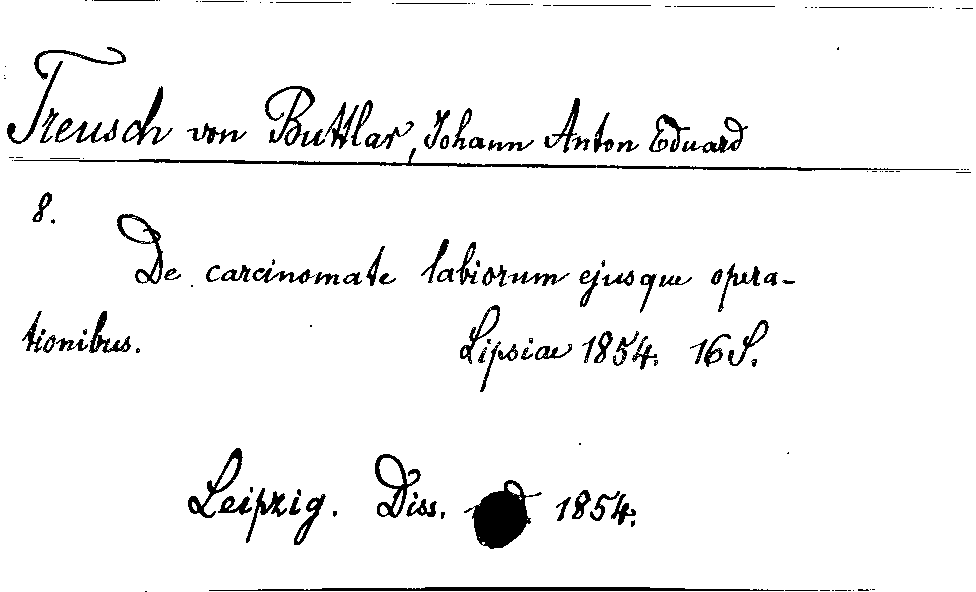 Treusch von Buttlar, Johann Anton Eduard
8.
De carcinomate labiorum ejusque opera-
tionibus. Lipsiae 1854. 16 S.
Leipzig. Diss. 1854.